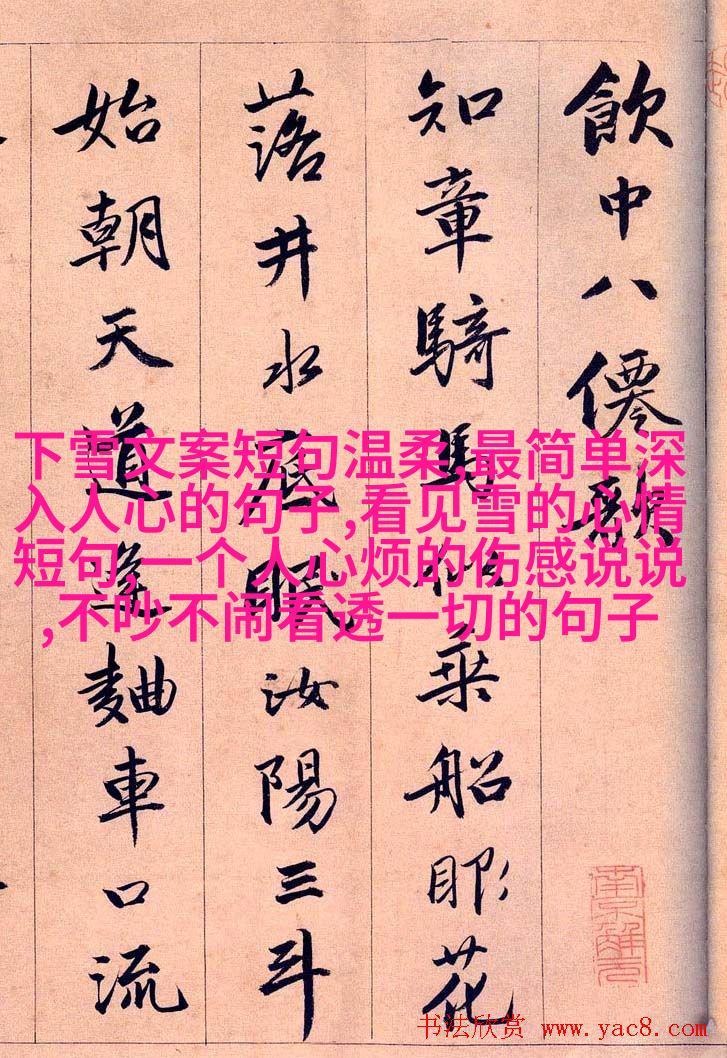 飲中八僊歌
知章騎馬似乘船眼花
落井水底眠汝陽三斗
始朝天道逢麯車口流
下雪文案短句温柔,最简单深
入人心的句子,看见雪的心情
短句,一个人心烦的伤感说说
,不吵不闹看透一切的句子
南京解元
书法欣赏 www.yac8.com